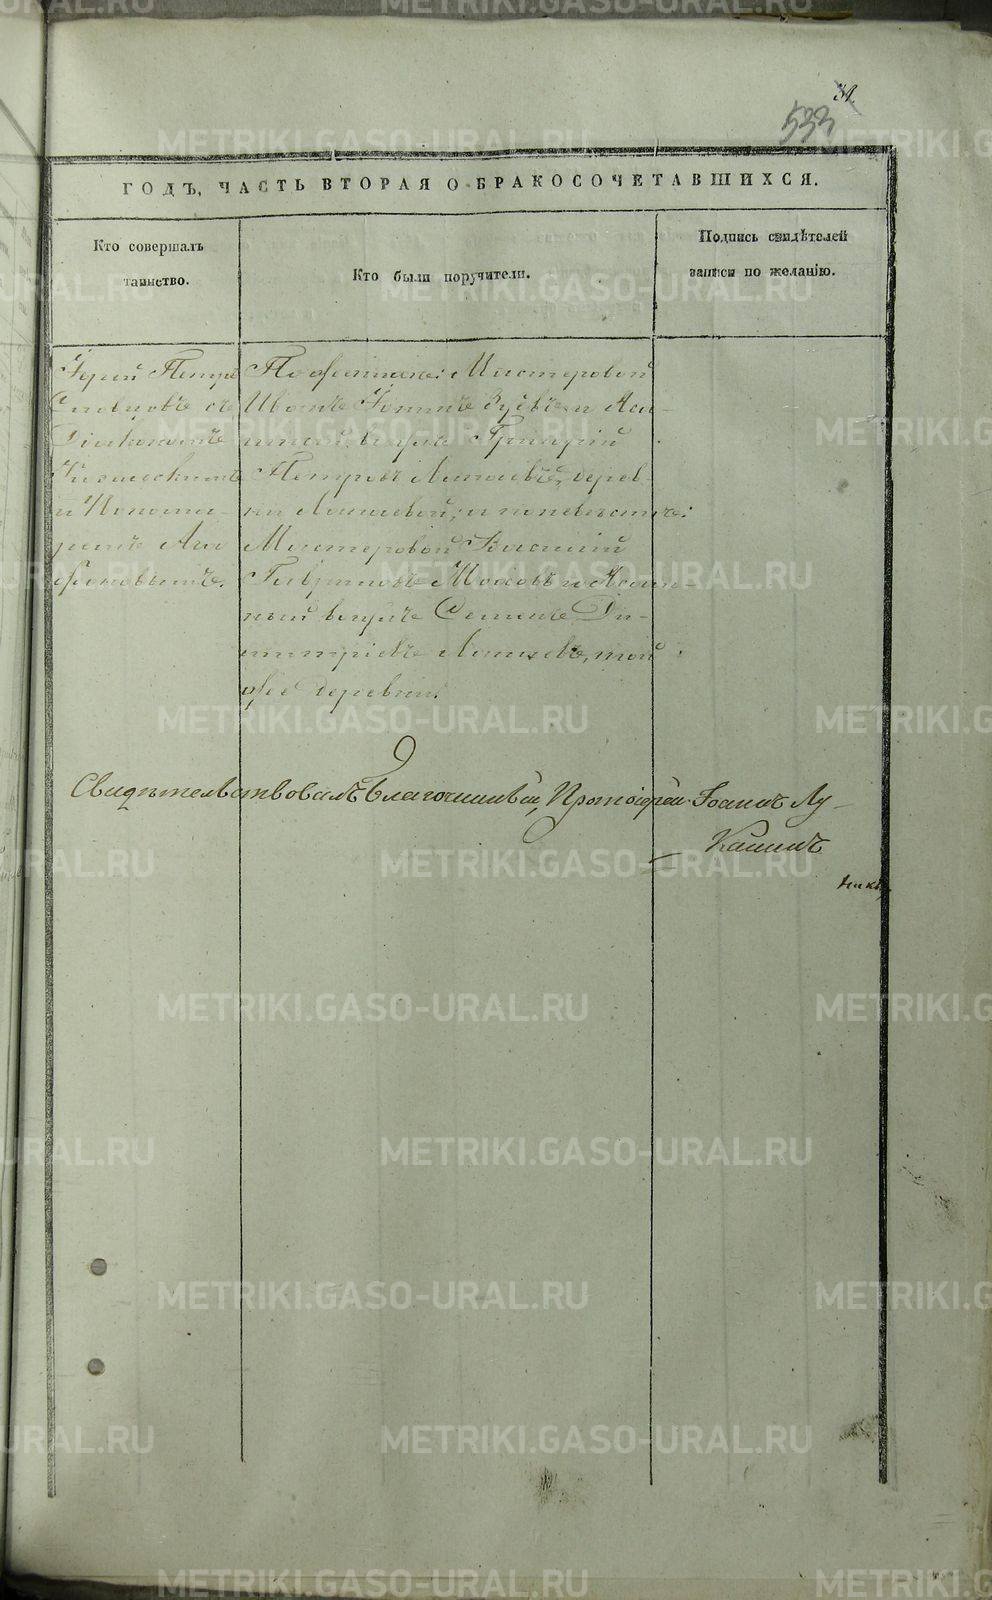 31.
533
ГОДЪ, ЧАСТЬ ВТОРАЯ О БРАКОСОЧЕТАВШИХСЯ.
Кто совершалъ
таинство.
Кто были поручители.
Подпись свидѣтелей
записи по желанію.
Іерей Петръ
Словцовъ съ
Діакономъ
и Понома-
ремъ Ага
фоновымъ.
По женихѣ: Мастеровой
Иванъ Зуевъ и
Григорій
Петровъ Липаевъ, дерев-
ни Липаевой; и по невѣстѣ:
Мастеровой Василій
Гавриловъ
Семенъ Ди-
митріевъ Липаевъ, той
же деревни.
Свидѣтельствовалъ Благочинный, Протоіерей Іоаннъ Лу-
канинъ
METRIKI.GASO-URAL.RU